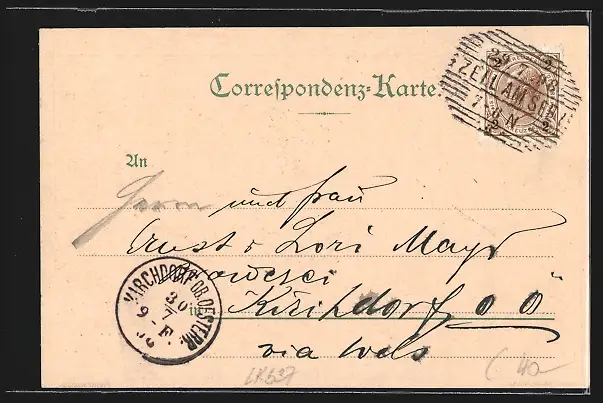 Correspondenz-Karte.
ZELL AM SEE
An
Herrn und Frau
Ernst & Lori Mayr
in Kirchdorf O Ö
via Wels
KIRCHDORF OB.OESTERR.
30
7
9-F.
LK637